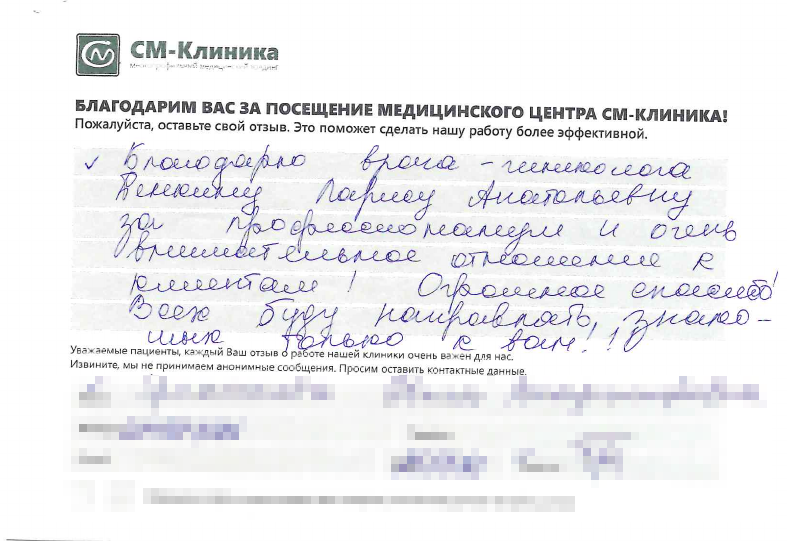 СМ-Клиника
многопрофильный медицинский холдинг
БЛАГОДАРИМ ВАС ЗА ПОСЕЩЕНИЕ МЕДИЦИНСКОГО ЦЕНТРА СМ-КЛИНИКА!
Пожалуйста, оставьте свой отзыв. Это поможет сделать нашу работу более эффективной.
Благодарю врача - гинеколога
Ларису Анатольевну
за профессионализм и очень
внимательное отношение к
клиентам! Огромное спасибо!
Всех буду направлять, знако-
мых только к вам!!
Уважаемые пациенты, каждый Ваш отзыв о работе нашей клиники очень важен для нас.
Извините, мы не принимаем анонимные сообщения. Просим оставить контактные данные.